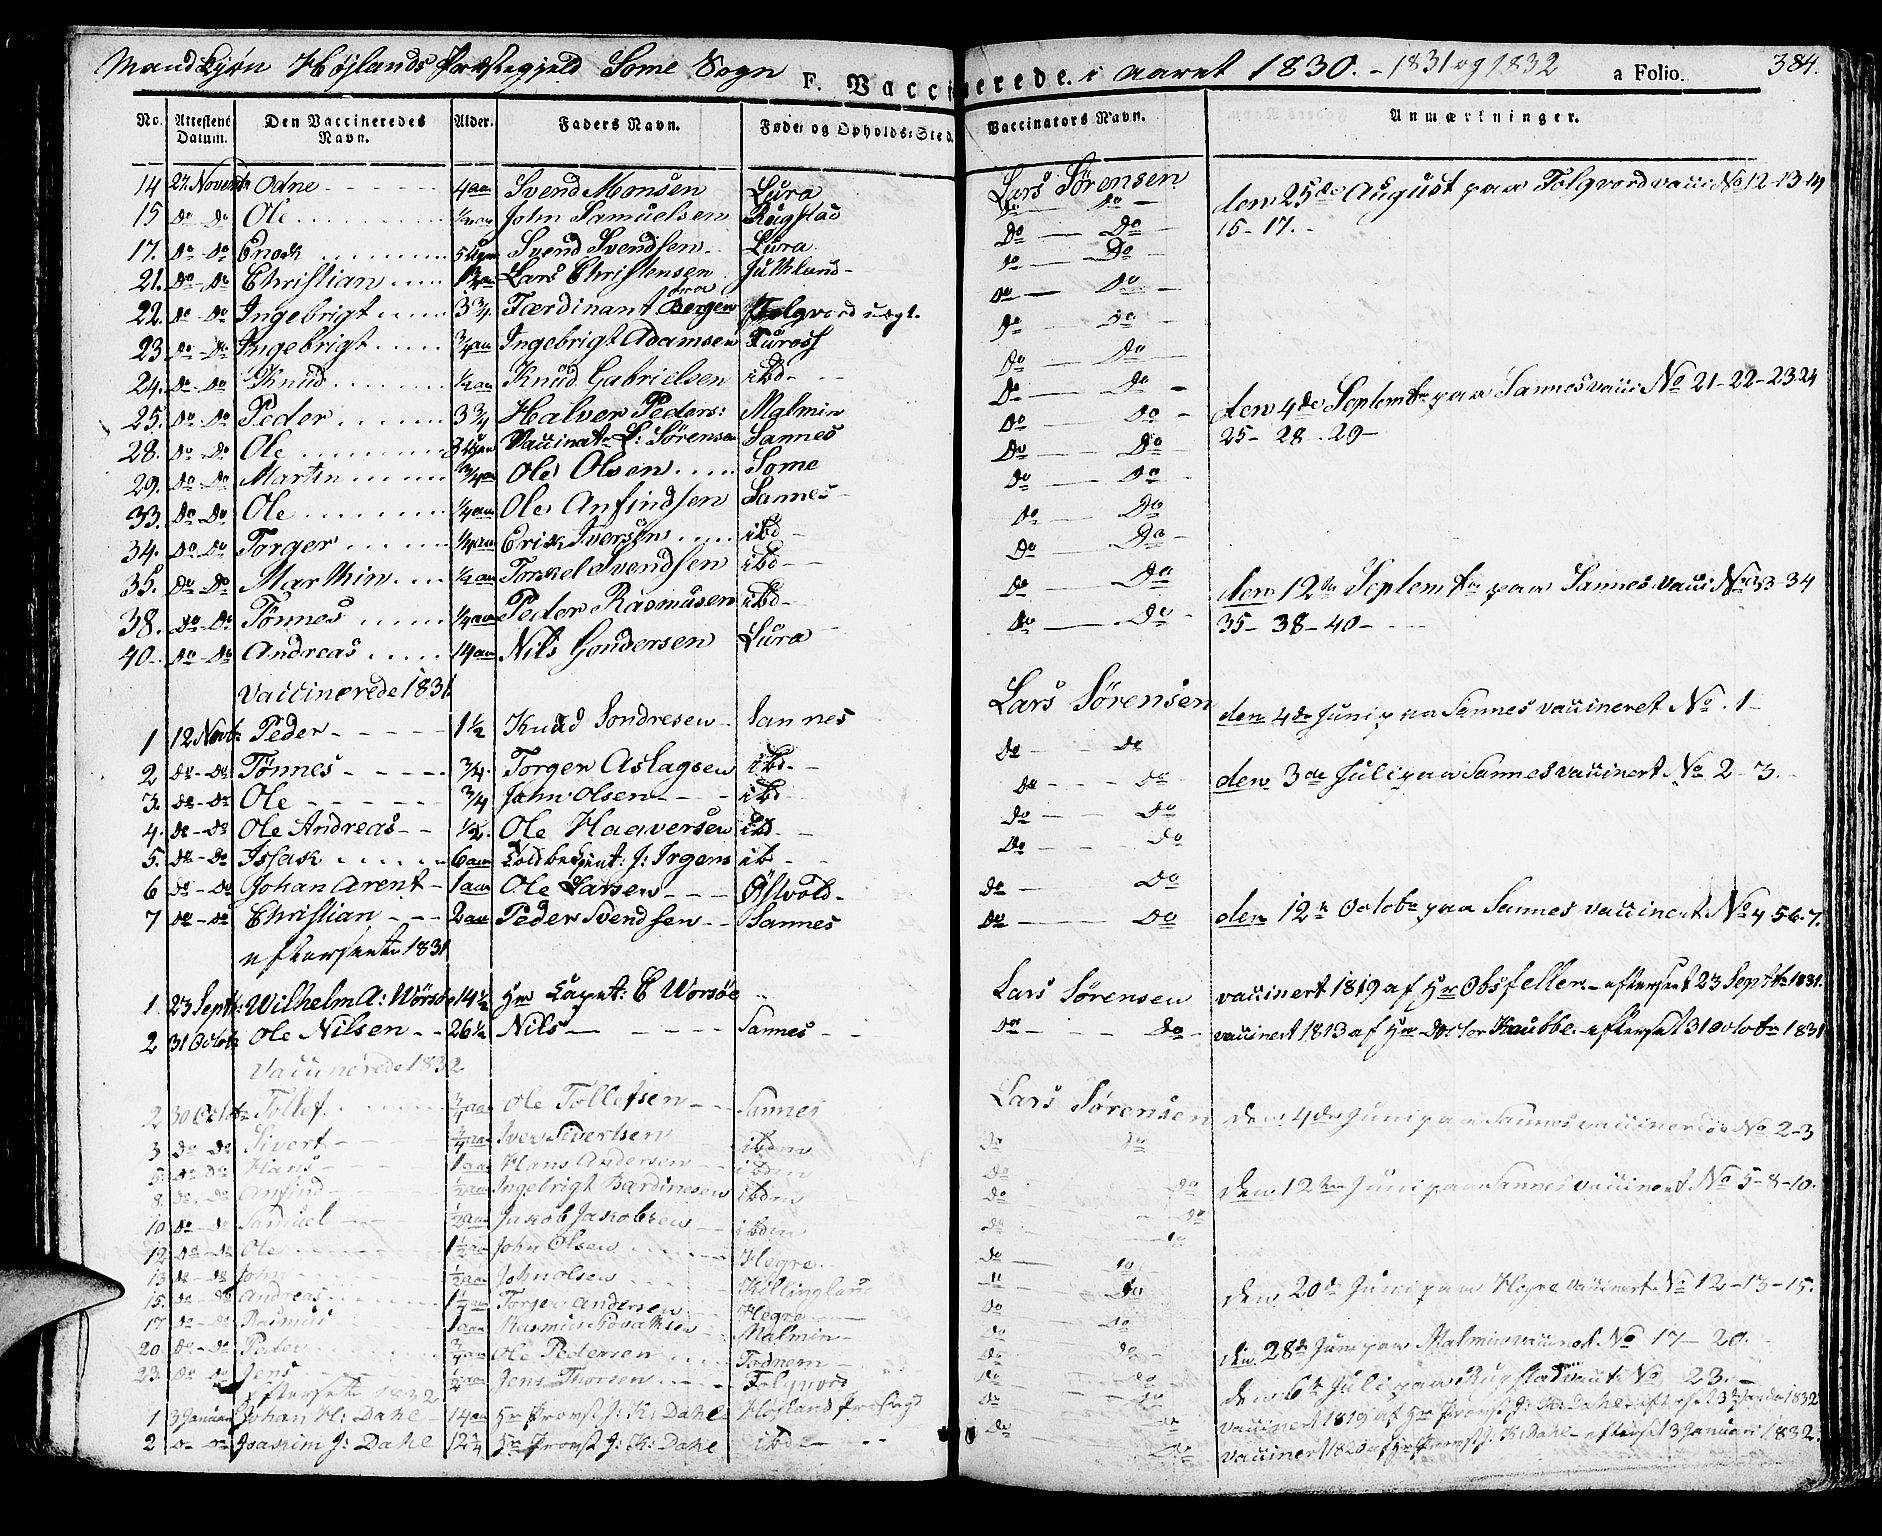 Mandkjøn Højlands Præstegjeld Some Sogn F. Vaccinerede. i aaret 1830. - 1831 og 1832 a Folio. 384.
No. Attestens Datum. Den Vaccineredes Navn. Alder. Faders Navn. Føde og Opholds-Sted. Vaccinators Navn. Anmærkninger.
14 27 Novembr Odne 4 aar Svend Monsen Lura Lars Sørensen den 25de August paa Folqvord vacci No 12-13-14
15 do - do Ole 1/2 aar John Samuelsen Rugstad do - do 15-17.
17. do - do Enock Svend Svendsen Lura do - do
21. do - do Christian Lars Christensen Juthland do - do
22. do - do Ingebrigt 3 3/4 Færdinant Bergen Folqvord do - do
23 do - do Ingebrigt 3/4 aar Ingebrigt Adamsen do - do
24. do - do Knud 1/2 aar Knud Gabrielsen ibd do - do
25. do - do Peder 3 3/4 Halver Peders: Malmin do - do den 4de Septembr paa Sannes vacci No 21-22-23 24
28. do - do Ole Vaccinatr L: Sørensen Sannes do - do 25-28-29
29. do - do Martin 3/4 aar Ole Olsen Some do - do
33. do - do Ole 1/4 aar Ole Anfindsen Sannes do - do
34. do - do Torger 1/4 aar Erik Iversen ibd do - do
35. do - do Marthin 1/2 aar Torkel Svendsen ibd do - do
38. do - do Tønnes 1/4 aar Peder Rasmusen ibd do - do den 12te Septembr paa Sannes vacci No 33-34
40. do - do Andreas 14 aar Nils Gondersen Lura do - do 35-38-40
Vaccinerede 1831
1 12 Novbr Peder 1 1/2 Knud Sondresen Sannes Lars Sørensen den 4de Juni paa Sannes vaccineret No. 1
2 do - do Tønnes 3/4 Torger Aslagsen ibd do - do den 3de Juli paa Sannes vaccinert No 2-3.
3. do - do Ole 3/4 John Olsen ibd do - do
4. do - do Ole Andreas 1/2 Ole Haaversen ibd do - do
5. do - do Issak 6 aar J: Irgens ibd do - do
6 do - do Johan Arent 1 aar Ole Larsen Østvold do - do
7 do - do Christian 2 aar Peder Svendsen Sannes do - do den 12te Octobr paa Sannes vaccinert No 4 5 6-7.
eftersente 1831
1 23 Septb: Wilhelm A: Wörsøe 14 1/2 Hr Capt: C Worsøe Lars Sørensen vaccinert 1819 af Hr Obsfeller - efterseet 23 Septbr 1831.
2 31 Octob Ole Nilsen 26 1/2 Nils Sannes do - do vaccinert 1813 af Hr Doctor Kaubbe - efterset 31 octobr 1831
Vaccinerede 1832
2 30 Octbr Tollef 3/4 aar Ole Tollefsen Sannes Lars Sørensen den 4de Juni paa Sannes vaccinerede No 2-3
3 do do Sivert 3/4 aar Iver Sivertsen ibdm do do
5. do do Hans 1 aar Hans Andersen ibdm do do
8. do. do Anfind 1/2 aar Ingebrigt Bardinesen ibdm do do den 12te Juni paa Sannes vaccinert No 5-8-10.
10 do do Samuel 1/2 aar Jakob Jakobsen ibdm do do
12 do - do Ole 1 1/2 aar John Olsen Hegre do do
13 do - do John 1/2 aar John olsen Killingland do do
15. do - do Andreas Torger Andersen Hegre do do den 20de Juni paa Hegre vaccinert No 12-13-15.
17 do - do Rasmus 1 aar Rasmus Malmin do do
20 do - do Peder 3/4 aar Ole Pedersen Fodnem do do den 28de Juni paa Malmin vaccinet No 17-20.
23. do do Jens 1/2 aar Jens Thorsen Folqvord do do den 6te Juli paa Rugstad No 23.
efterset 1832
1 3 Januar Johan H: Dahl 14 aar Hr Provst J: K: Dahl Højland do do vaccinert 1819 af Hr Provst J: K: Dahl 3 Januar 1832
2 do do Joakim J: Dahl 12 1/4 Hr Provst J: K: Dahl ibd do vaccinert 1820 af Hr Provst J: K: Dahl - efterset 3 Januari 1832.